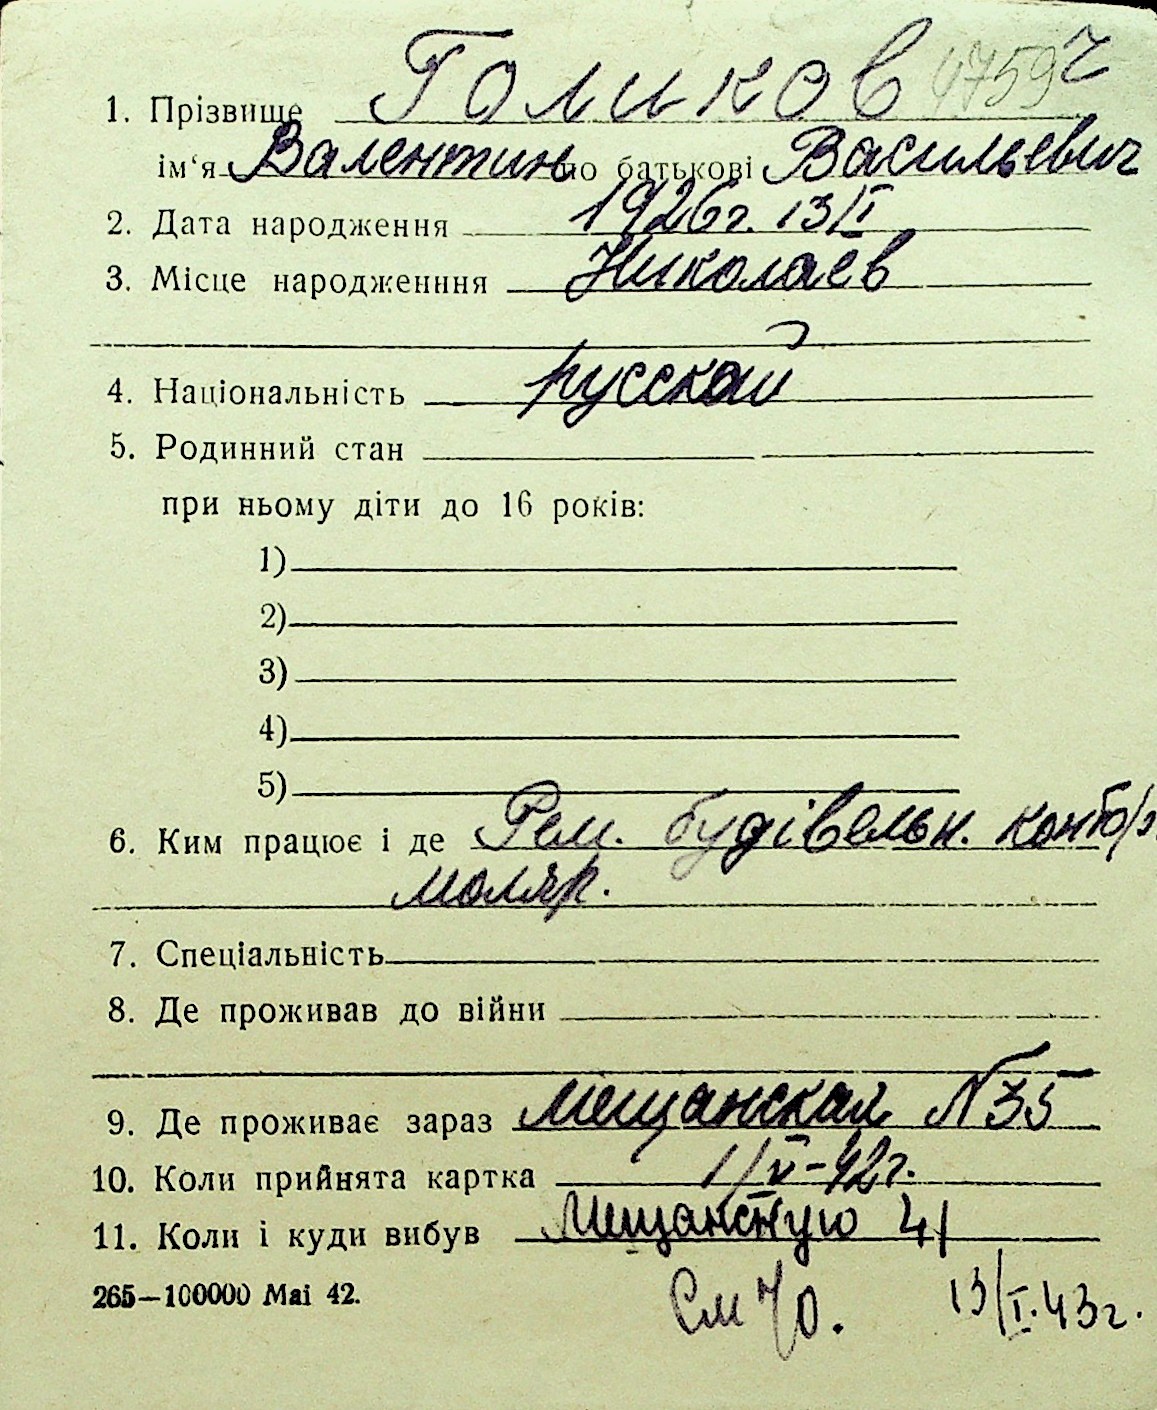 1. Прізвище Голиков 4759 2
ім‘я Валентин по батькові Васильевич
2. Дата народження 1926 г. 13/I
3. Місце народженння Николаев
4. Національність русской
5. Родинний стан
при ньому діти до 16 років:
1)
2)
3)
4)
5)
6. Ким працює і де Рем. будівельн.
маляр.
7. Спеціальність
8. Де проживав до війни
9. Де проживає зараз Мещанская N 35
10. Коли прийнята картка 1/V-42 г.
11. Коли і куди вибув Мещанскую 41
265—100000 Mai 42.
13/I.43 г.